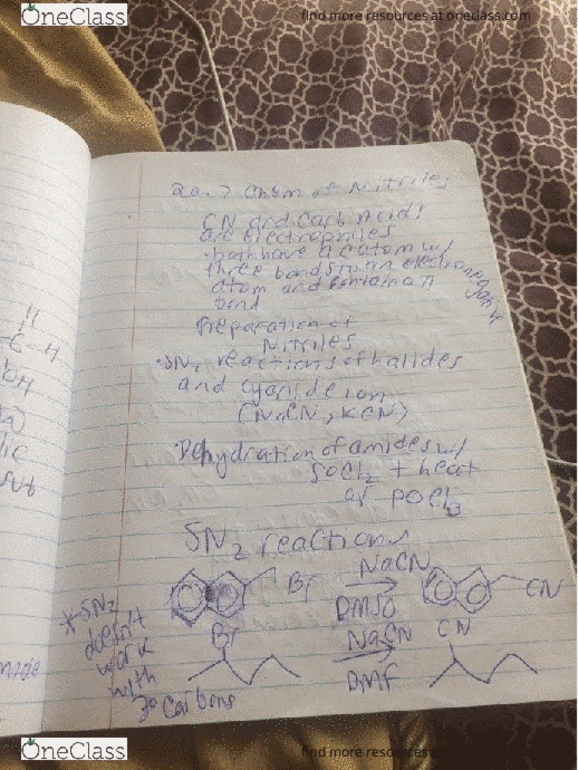 OneClass
find more resources at oneclass.com
20.7 Chem of Nitriles
CN and Carb. Acids
are electrophiles
• both have a C atom w/
three bonds to an electronegative
atom and contain a π
bond
Preparation of
Nitriles
• SN2 reactions of halides
and cyanide ion
(NaCN, KCN)
• Dehydration of amides w/
SOCl2 + heat
or POCl3
SN2 reactions
Br
NaCN
DMSO
CN
* SN2
doesn't
work
with
3° Carbons
Br
NaCN
DMF
CN
H
C-H
OH
OneClass
find more resources